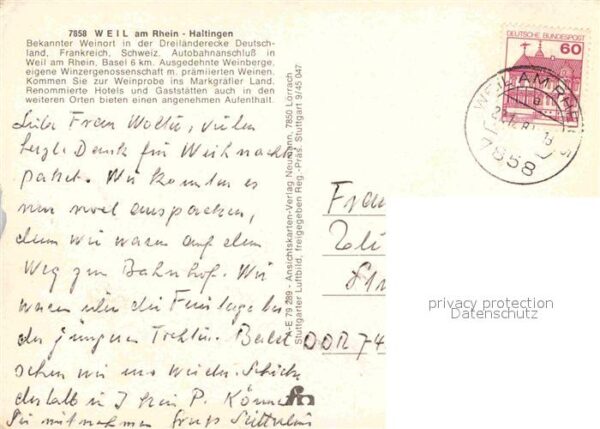 7858 WEIL am Rhein - Haltingen
Bekannter Weinort in der Dreiländerecke Deutsch-
land, Frankreich, Schweiz. Autobahnanschluß in
Weil am Rhein, Basel 6 km. Ausgedehnte Weinberge,
eigene Winzergenossenschaft m. prämiierten Weinen.
Kommen Sie zur Weinprobe ins Markgräfler Land.
Renommierte Hotels und Gaststätten auch in den
weiteren Orten bieten einen angenehmen Aufenthalt.
DEUTSCHE BUNDESPOST
60
WEIL AM RHEIN
7858
Liebe Frau, vielen
herzl. Dank für Weihnachts
paket. Wir konnten es
nur noch auspacken,
denn wir waren auf dem
Weg zum Bahnhof. Wir
waren über die Feiertage bei
der jüngeren Tochter. Bald
sehen wir uns wieder.
deshalb in P. Können
Sie mitnehmen Gruß
A-E 79 289 - Ansichtskarten-Verlag Neumann, 7850 Lörrach
Stuttgarter Luftbild, freigegeben Reg.-Präs. Stuttgart 9/45 047
Frau
DDR 74
privacy protection
Datenschutz